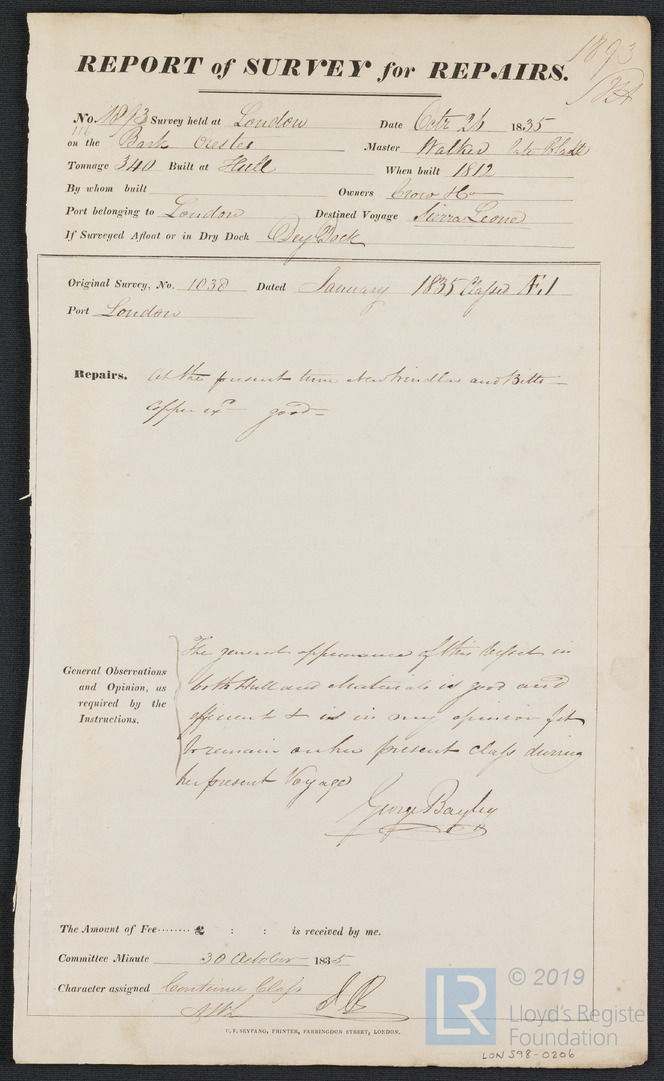 1893
REPORT of SURVEY for REPAIRS.
No. 1893 Survey held at London Date Octr 26 1835
on the Bark Orestes Master Walker late
Tonnage 340 Built at Hull When built 1812
By whom built Owners Crow &
Port belonging to London Destined Voyage Sierra Leone
If Surveyed Afloat or in Dry Dock Dry Dock
Original Survey, No. 1038 Dated January 1835 Classed Æ.1
Port London
Repairs. At the present time New Windlass and Bitts
Copper good
The general appearance of this Vessel in
General Observations and Opinion, as required by the Instructions.
both Hull and Materials is good and
efficient & is in my opinion fit
to remain on her present class during
her present Voyage
George Bayley
The Amount of Fee........ £ : : is received by me.
Committee Minute 30 October 1835
Character assigned Continue Class
C. F. SEYFANG, PRINTER, FARRINGDON STREET, LONDON.
LR
© 2019
Lloyd's Registe
Foundation
LON 598-0206